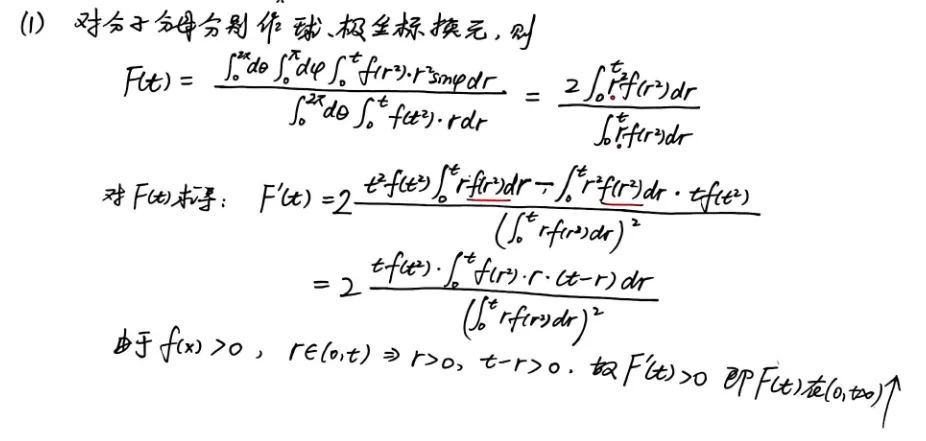 (1) 对分子分母分别作球、极坐标换元,则
F(t) = \frac{\int_0^{2\pi}dθ\int_0^{\pi}dφ\int_0^t f(r²)·r²sinφdr}{\int_0^{2\pi}dθ\int_0^t f(t²)·rdr} = \frac{2\int_0^t r²f(r²)dr}{\int_0^t rf(r²)dr}
对F(t)求导: F'(t)=2\frac{t²f(t²)\int_0^t rf(r²)dr-\int_0^t r²f(r²)dr·tf(t²)}{(\int_0^t rf(r²)dr)^2}
=2\frac{tf(t²)·\int_0^t f(r²)·r·(t-r)dr}{(\int_0^t rf(r²)dr)^2}
由于f(x)>0, r∈(0,t)⇒r>0, t-r>0. 故F'(t)>0 即F(t)在(0,+∞)↑